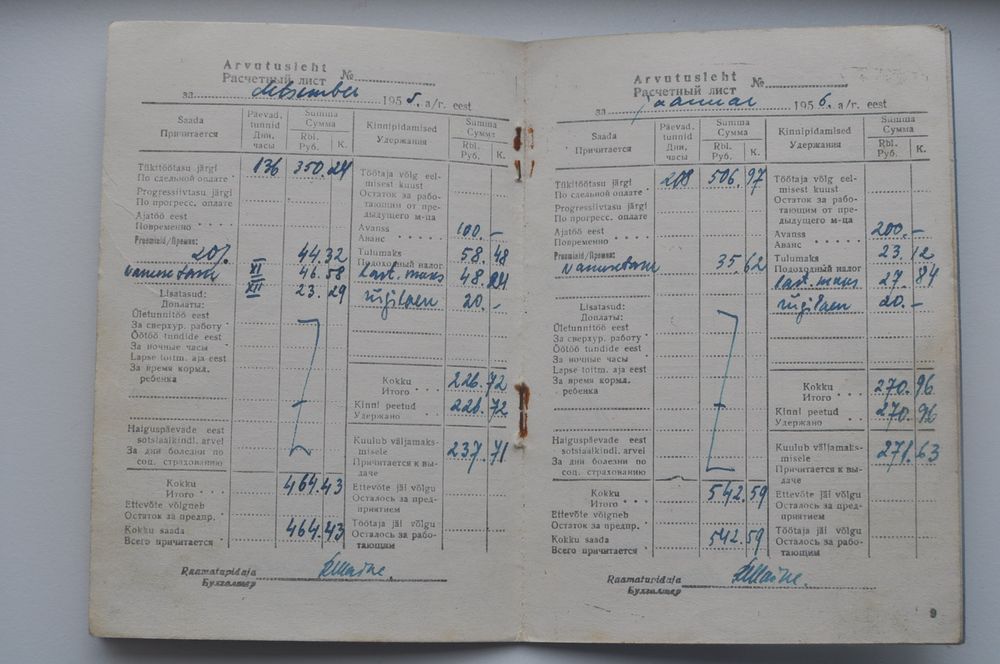 Arvutusleht
Расчетный лист №
за detsember 1955. a/r. eest
Saada
Причитается
Päevad, tunnid
Дни, часы
Summa
Сумма
Rbl.
Руб.
K.
Kinnipidamised
Удержания
Summa
Сумма
Rbl.
Руб.
K.
Tükitöötasu järgi
По сдельной оплате
136 350.24
Progressiivtasu järgi
По прогресс. оплате
Ajatöö eest
Повременно
Preemiaid/Премия:
20% 44.32
vanusetasu XI 46.58
XII 23.29
Lisatasud:
Доплаты:
Ületunnitöö eest
За сверхур. работу
Öötöö tundide eest
За ночные часы
Lapse toitm. aja eest
За время кормл.
ребенка
Haiguspäevade eest
sotsiaalkindl. arvel
За дни болезни по
соц. страхованию
Kokku
Итого
464.43
Ettevõte võlgneb
Остаток за предпр.
Kokku saada
Всего причитается
464.43
Töötaja võlg eel-
misest kuust
Остаток за рабо-
тающим от пре-
дыдущего м-ца
Avanss
Аванс
100.-
Tulumaks
Подоходный налог
58.48
Last. maks 48.24
riigilaen 20.-
Kokku
Итого
226.72
Kinni peetud
Удержано
226.72
Kuulub väljamaks-
misele
Причитается к вы-
даче
237.71
Ettevõte jäi võlgu
Осталось за пред-
приятием
Töötaja jäi võlgu
Осталось за рабо-
тающим
Raamatupidaja
Бухгалтер
Arvutusleht
Расчетный лист №
за jaanuar 1956. a/r. eest
Saada
Причитается
Päevad, tunnid
Дни, часы
Summa
Сумма
Rbl.
Руб.
K.
Kinnipidamised
Удержания
Summa
Сумма
Rbl.
Руб.
K.
Tükitöötasu järgi
По сдельной оплате
208 506.97
Progressiivtasu järgi
По прогресс. оплате
Ajatöö eest
Повременно
Preemiaid/Премия:
vanusetasu 35.62
Lisatasud:
Доплаты:
Ületunnitöö eest
За сверхур. работу
Öötöö tundide eest
За ночные часы
Lapse toitm. aja eest
За время кормл.
ребенка
Haiguspäevade eest
sotsiaalkindl. arvel
За дни болезни по
соц. страхованию
Kokku
Итого
542.59
Ettevõte võlgneb
Остаток за предпр.
Kokku saada
Всего причитается
542.59
Töötaja võlg eel-
misest kuust
Остаток за рабо-
тающим от пре-
дыдущего м-ца
Avanss
Аванс
200.-
Tulumaks
Подоходный налог
23.12
last. maks 27.84
riigilaen 20.-
Kokku
Итого
270.96
Kinni peetud
Удержано
270.96
Kuulub väljamaks-
misele
Причитается к вы-
даче
271.63
Ettevõte jäi võlgu
Осталось за пред-
приятием
Töötaja jäi võlgu
Осталось за рабо-
тающим
Raamatupidaja
Бухгалтер
9